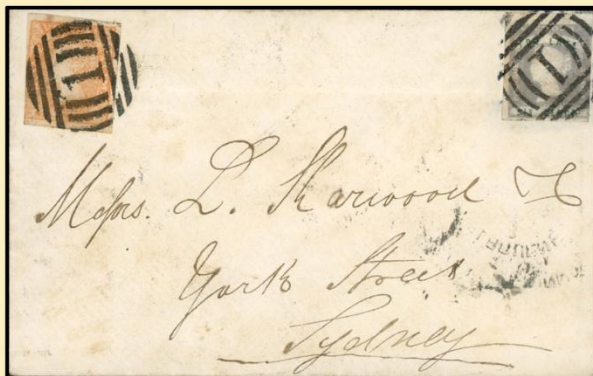 1 1
Messrs. L. Harwood
York Street
Sydney